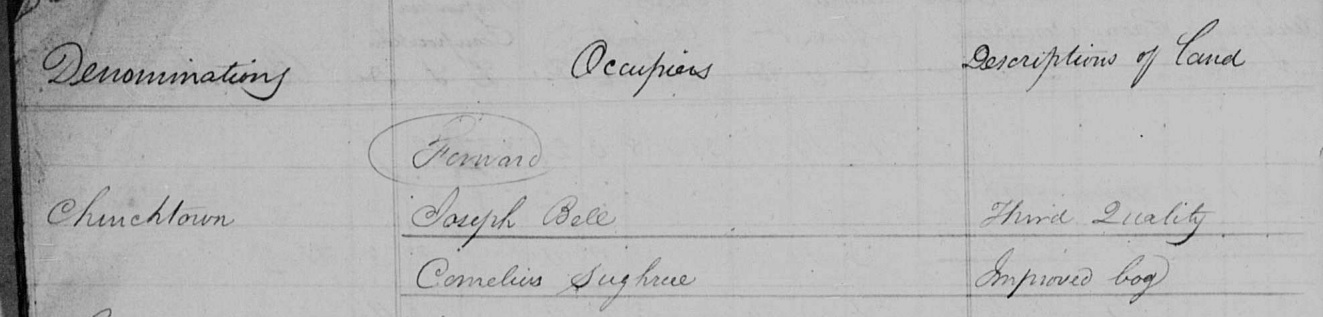 Denominations Occupiers Descriptions of Land
Forward
Churchtown Joseph Bell Third Quality
Cornelius Sughrue Improved bog